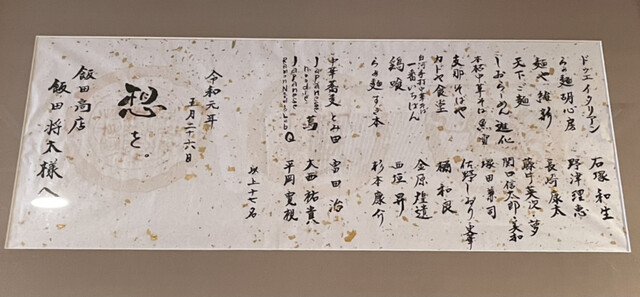 ドゥエイタリアン 石塚 和生
らぁ麺 胡心房 野津 理恵
麺や 維新 長崎 康太
天下ご麺 藤中 英次・夢
しおらーめん 進化 関口信太郎・美和
本格中華そば 魚雷 塚田 兼司
支那そばや 佐野しおり・史華
カドヤ食堂 橘 和良
白河手打中華そば
一番いちばん 金原 隆造
鶏喰 西垣 昇
らぁ麺すぎ本 杉本 康介
中華蕎麦 とみ田 富田 治
Japanese
noodle 蔦 大西 祐貴
Japanese
Ramen Noodle Lab Q 平岡 寛視
以上十七名
令和元年
五月二十六日
想 を。
飯田商店
飯田 将太 様 へ